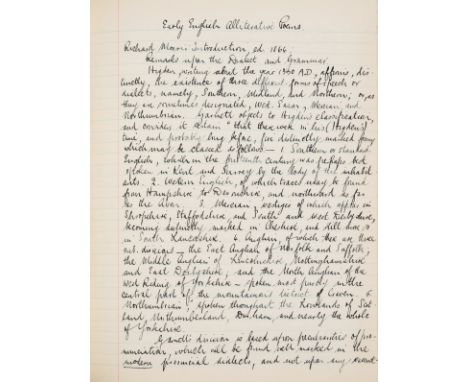 Early English Alliterative Poems
Richard Morris' Introduction, ed. 1864.
Remarks upon the Dialect and Grammar
Higden, writing about the year 1350 A.D., affirms, dis-
tinctly, the existence of three different forms of speech or
dialects, namely, Southern, Midland, and Northern; or, as
they are sometimes designated, West Saxon, Mercian, and
Northumbrian. Garnett objects to Higden's classification,
and considers it certain "that there were in his (Higden's)
time, and probably long before, five distinctly marked forms,
which may be classed as follows:— 1. Southern or standard
English, which in the fourteenth century was perhaps best
spoken in Kent and Surrey by the body of the inhabit-
ants. 2. Western English, of which traces may be found
from Hampshire to Devonshire, and northward as far
as the Avon. 3. Mercian, vestiges of which appear in
Shropshire, Staffordshire, and South and West Derbyshire,
becoming distinctly marked in Cheshire, and still more so
in South Lancashire. 4. Anglian, of which there are three
sub-divisions — the East Anglian of Norfolk and Suffolk;
the Middle Anglian of Lincolnshire, Nottinghamshire
and East Derbyshire; and the North Anglian of the
West Riding of Yorkshire — spoken most purely in the
central part of the mountainous district of Craven. 5.
Northumbrian, spoken throughout the Lowlands of Scot-
land, Northumberland, Durham, and nearly the whole
of Yorkshire.
Garnett's division is based upon peculiarities of pro-
nunciation, which will be found well marked in the
modern provincial dialects, and not upon any